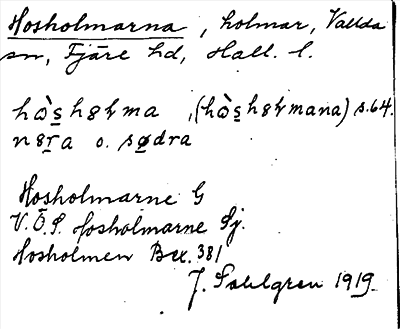 Hosholmarna, holmar, Vallda
sn, Fjäre hd, Hall. l.
hòs̲hɵɫma, (hòs̲hɵɫmana) s. 64.
nɵr̲a o. sødra
Hosholmarne G
V.Ö.S. Hosholmarne Sj.
Hosholmen Bex. 381
J. Sahlgren 1919